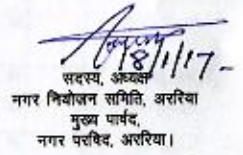 18/1/17
सदस्य, अध्यक्ष
नगर नियोजन समिति, अररिया
मुख्य पार्षद,
नगर परषिद, अररिया।